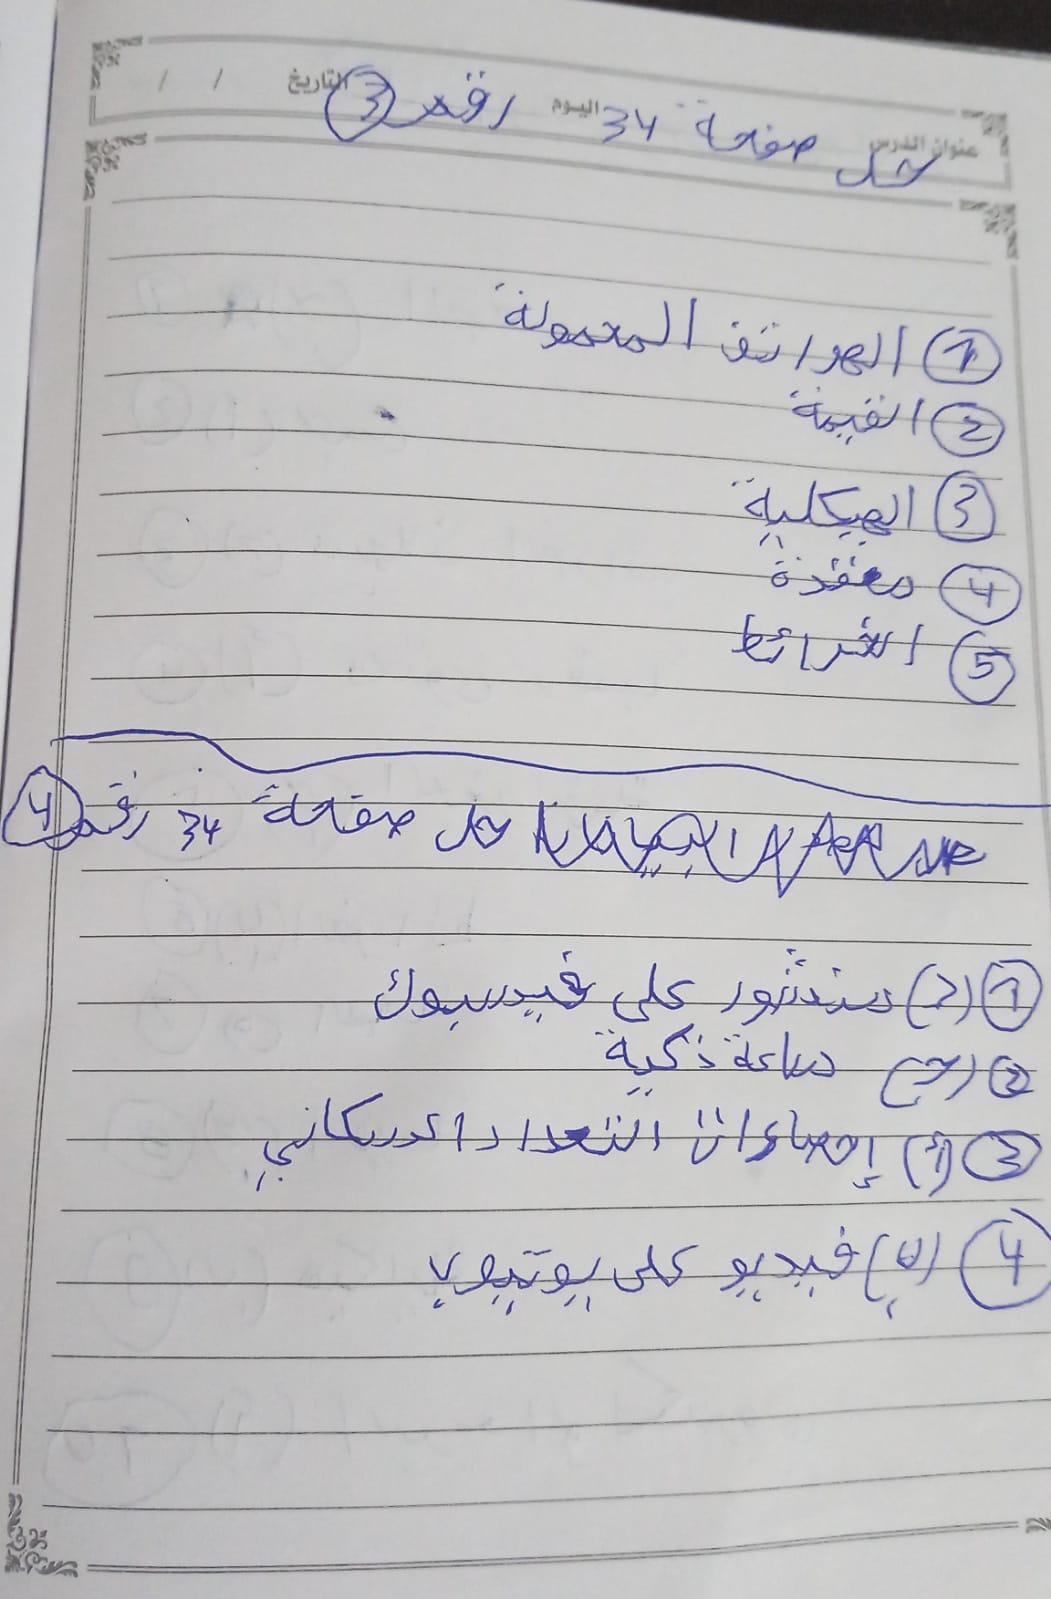 عنوان الدرس اليوم التاريخ / /
حل صفحة 34 رقم 3
1 الهواتف المحمولة
2 القيمة
3 الهيكلية
4 معقدة
5 الخرائط
حل صفحة 34 رقم 4
1 (د) منشور على فيسبوك
2 (ج) ساعة ذكية
3 (أ) إحصاءات التعداد السكاني
4 (ب) فيديو على يوتيوب